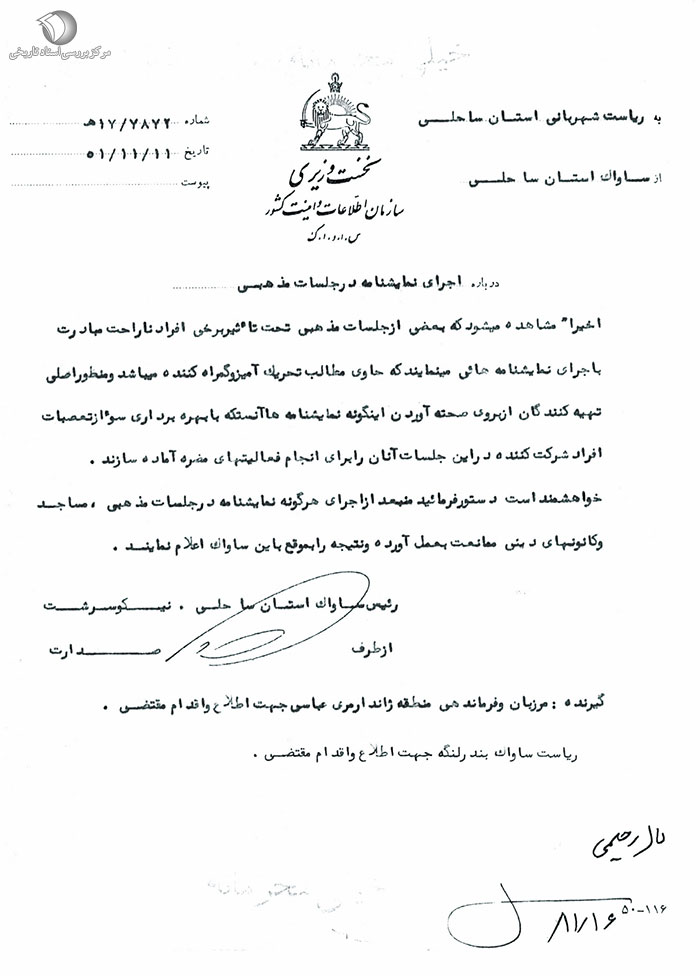 مرکز بررسی اسناد تاریخی
به ریاست شهربانی استان ساحلی
از ساواک استان ساحلی
نخست وزیری
سازمان اطلاعات و امنیت کشور
س.ا.و.ا.ک
شماره ۱۷/۷۸۷۲هـ
تاریخ ۵۱/۱۱/۱۱
پیوست
درباره اجرای نمایشنامه درجلسات مذهبی
اخیرا" مشاهده میشود که بعضی ازجلسات مذهبی تحت تاثیربرخی افراد ناراحت مبادرت
باجرای نمایشنامه هائی مینمایند که حاوی مطالب تحریک آمیزوگمراه کننده میباشد ومنظوراصلی
تهیه کنندگان ازبروی صحنه آوردن اینگونه نمایشنامه هاآنستکه بابهره برداری سوٴازتعصبات
افراد شرکت کننده دراین جلسات آنان رابرای انجام فعالیتهای مضره آماده سازند .
خواهشمند است دستورفرمائید منبعد ازاجرای هرگونه نمایشنامه درجلسات مذهبی ، مساجد
وکانونهای دینی ممانعت بعمل آورده ونتیجه رابموقع باین ساواک اعلام نمایند .
رئیس ساواک استان ساحلی . نیکوسرشت
ازطرف صدارت
گیرنده : مرزبان وفرماندهی منطقه ژاندارمری عباسی جهت اطلاع واقدام مقتضی .
ریاست ساواک بندرلنگه جهت اطلاع واقدام مقتضی .
رحیمی
۵۰-۱۱۶